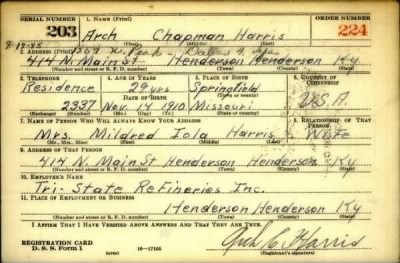 SERIAL NUMBER 1. NAME (Print) ORDER NUMBER
203 Arch Chapman Harris 224
(First) (Middle) (Last)
2. ADDRESS (Print)
414 N. Main St Henderson Henderson Ky
(Number and street or R. F. D. number) (Town) (County) (State)
3. TELEPHONE 4. AGE IN YEARS 5. PLACE OF BIRTH 6. COUNTRY OF CITIZENSHIP
Residence 29 yrs Springfield
2337 Nov. 14 1910 Missouri U.S.A.
(Exchange) (Number) (Mo.) (Day) (Yr.) (State or country)
7. NAME OF PERSON WHO WILL ALWAYS KNOW YOUR ADDRESS 8. RELATIONSHIP OF THAT PERSON
Mrs. Mildred Iola Harris Wife
(Mr., Mrs., Miss) (First) (Middle) (Last)
9. ADDRESS OF THAT PERSON
414 N. Main St Henderson Henderson Ky
(Number and street or R. F. D. number) (Town) (County) (State)
10. EMPLOYER'S NAME
Tri-State Refineries Inc.
11. PLACE OF EMPLOYMENT OR BUSINESS
Henderson Henderson Ky
(Number and street or R. F. D. number) (Town) (County) (State)
I AFFIRM THAT I HAVE VERIFIED ABOVE ANSWERS AND THAT THEY ARE TRUE.
REGISTRATION CARD
D. S. S. Form 1 16-17105 Arch C Harris
(Registrant's signature)